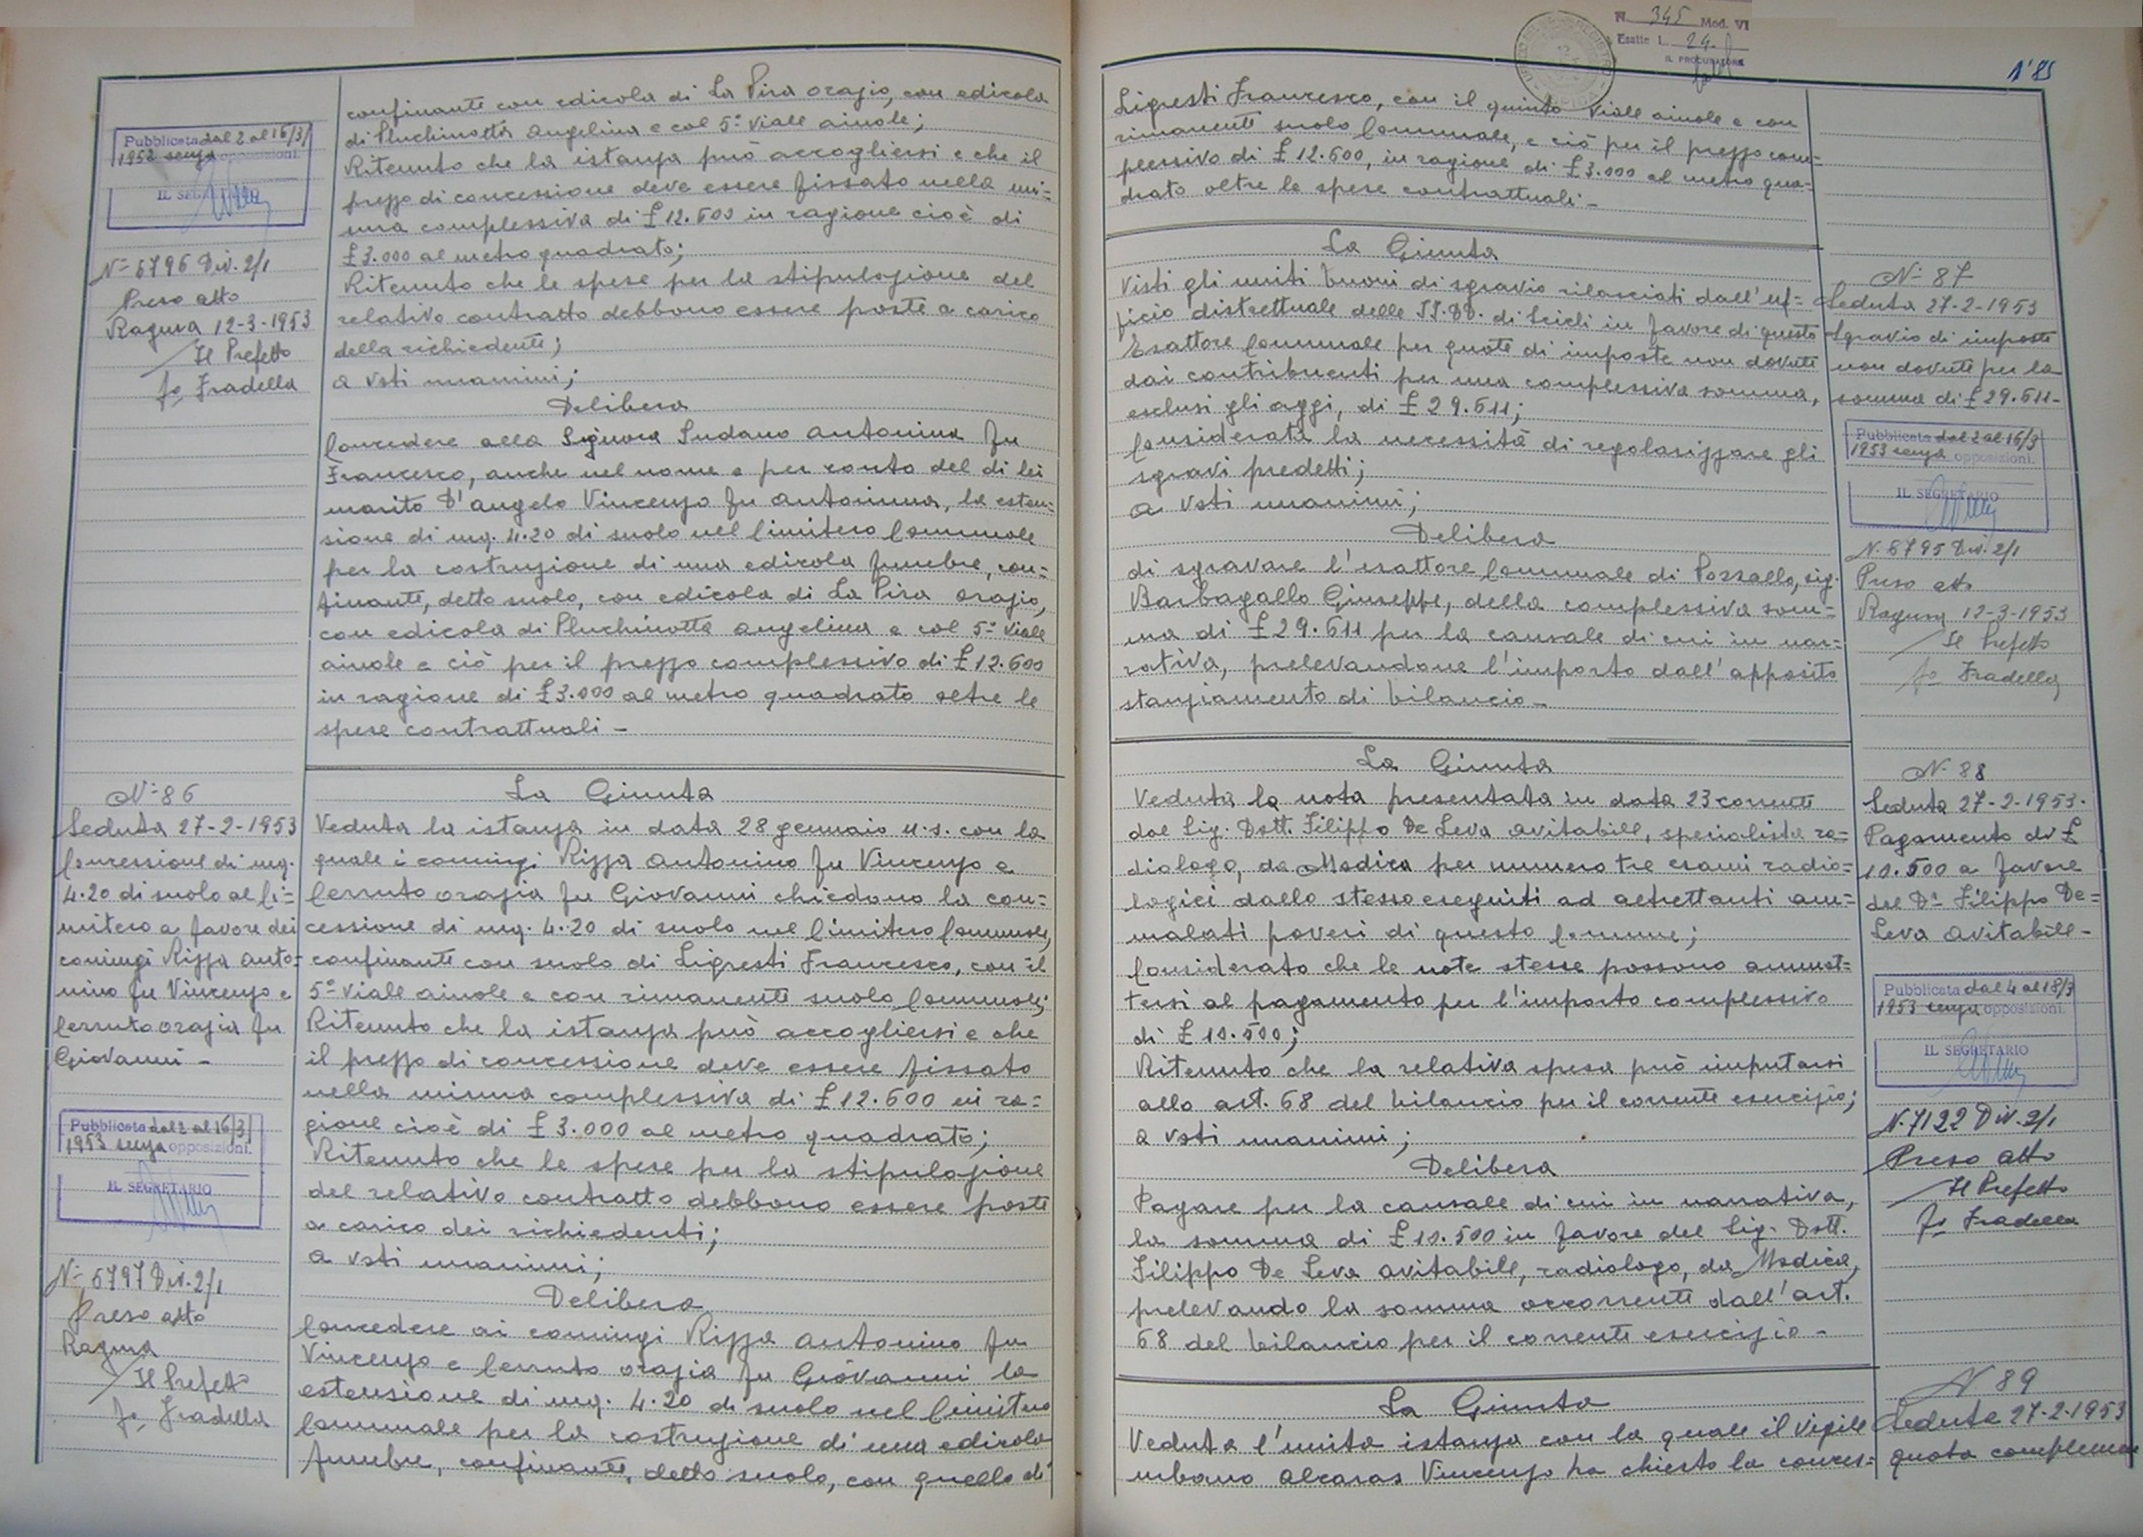 Pubblicata dal 2 al 16/3/
1953 senza opposizioni.
IL SEGRETARIO
N° 6796 Div. 2/1
Preso atto
Ragusa 12-3-1953
Il Prefetto
fo Fradella
confinante con edicola di La Pira Orazio, con edicola
di Pluchinotta Angelina e col 5° viale ainole;
Ritenuto che la istanza può accogliersi e che il
prezzo di concessione deve essere fissato nella mi=
sura complessiva di £ 12.600 in ragione cioè di
£ 3.000 al metro quadrato;
Ritenuto che le spese per la stipulazione del
relativo contratto debbono essere poste a carico
della richiedente;
a voti unanimi;
Delibera
Concedere alla Signora Sudano Antonina fu
Francesco, anche nel nome e per conto del di lei
marito D'Angelo Vincenzo fu Antonino, la esten=
sione di mq. 4.20 di suolo nel Cimitero Comunale
per la costruzione di una edicola funebre, con=
finante, detto suolo, con edicola di La Pira Orazio,
con edicola di Pluchinotta Angelina e col 5° viale
ainole e ciò per il prezzo complessivo di £ 12.600
in ragione di £ 3.000 al metro quadrato oltre le
spese contrattuali -
N° 86
Seduta 27-2-1953
Concessione di mq.
4.20 di suolo al Ci=
mitero a favore dei
coniugi Rizza Anto=
nino fu Vincenzo e
Cerruto Orazia fu
Giovanni -
Pubblicata dal 2 al 16/3/
1953 senza opposizioni.
IL SEGRETARIO
N° 6797 Div. 2/1
Preso atto
Ragusa
Il Prefetto
fo Fradella
La Giunta
Veduta la istanza in data 28 gennaio u.s. con la
quale i coniugi Rizza Antonino fu Vincenzo e
Cerruto Orazia fu Giovanni chiedono la con=
cessione di mq. 4.20 di suolo nel Cimitero Comunale,
confinante con suolo di Ligresti Francesco, con il
5° viale ainole e con rimanente suolo Comunale;
Ritenuto che la istanza può accogliersi e che
il prezzo di concessione deve essere fissato
nella misura complessiva di £ 12.600 in ra=
gione cioè di £ 3.000 al metro quadrato;
Ritenuto che le spese per la stipulazione
del relativo contratto debbono essere poste
a carico dei richiedenti;
a voti unanimi;
Delibera
Concedere ai coniugi Rizza Antonino fu
Vincenzo e Cerruto Orazia fu Giovanni la
estensione di mq. 4.20 di suolo nel Cimitero
Comunale per la costruzione di una edicola
funebre, confinante, detto suolo, con quello di
N. 345 Mod. VI
Esatte L. 24.
IL PROCURATORE
N° 85
Ligresti Francesco, con il quinto viale ainole e con
rimanente suolo Comunale, e ciò per il prezzo com=
plessivo di £ 12.600, in ragione di £ 3.000 al metro qua=
drato oltre le spese contrattuali -
La Giunta
Visti gli uniti buoni di sgravio rilasciati dall'uf=
ficio distrettuale delle II.DD. di Scicli in favore di questo
Esattore Comunale per quote di imposte non dovute
dai contribuenti per una complessiva somma,
esclusi gli aggi, di £ 29.611;
Considerata la necessità di regolarizzare gli
sgravi predetti;
a voti unanimi;
Delibera
di sgravare l'esattore Comunale di Pozzallo, sig.
Barbagallo Giuseppe, della complessiva som=
ma di £ 29.611 per la causale di cui in nar=
rativa, prelevandone l'importo dall'apposito
stanziamento di bilancio -
N° 87
Seduta 27-2-1953
Sgravio di imposte
non dovute per la
somma di £ 29.611 -
Pubblicata dal 2 al 16/3
1953 senza opposizioni.
IL SEGRETARIO
N. 8795 Div. 2/1
Preso atto
Ragusa 12-3-1953
Il Prefetto
fo Fradella
La Giunta
Veduta la nota presentata in data 23 corrente
dal Sig. Dott. Filippo De Leva Avitabile, specialista ra=
diologo, da Modica per numero tre esami radio=
logici dallo stesso eseguiti ad altrettanti am=
malati poveri di questo Comune;
Considerato che le note stesse possono ammet=
tersi al pagamento per l'importo complessivo
di £ 10.500;
Ritenuto che la relativa spesa può imputarsi
allo art. 68 del bilancio per il corrente esercizio;
a voti unanimi;
Delibera
Pagare per la causale di cui in narrativa,
la somma di £ 10.500 in favore del Sig. Dott.
Filippo De Leva Avitabile, radiologo, da Modica,
prelevando la somma occorrente dall'art.
68 del bilancio per il corrente esercizio -
N° 88
Seduta 27-2-1953.
Pagamento di £
10.500 a favore
del Dr Filippo De=
Leva Avitabile -
Pubblicata dal 4 al 18/3
1953 senza opposizioni.
IL SEGRETARIO
N. 7122 Div. 2/1
Preso atto
Il Prefetto
fo Fradella
La Giunta
Veduta l'unita istanza con la quale il vigile
urbano Alcaras Vincenzo ha chiesto la conces=
N 89
Seduta 27-2-1953
quota compleme